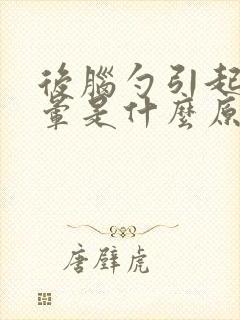 後腦勺引起
暈是什麼原
唐璧虎